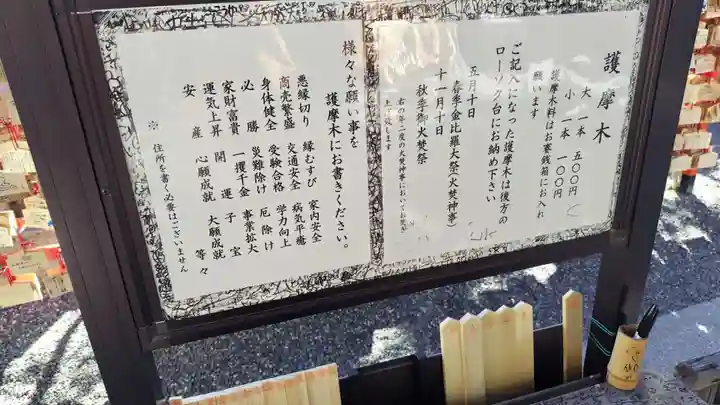 護摩木
大 一本 五〇〇円
小 一本 一〇〇円
護摩木料はお賽銭箱にお入れ
願います
ご記入になった護摩木は後方の
ローソク台にお納め下さい
五月十日
春季金比羅大祭(火焚神事)
十一月十日
秋季御火焚祭
右の年二度の火焚神事においてお焚き
上げ致します
様々な願い事を
護摩木にお書きください。
悪縁切り 縁むすび 家内安全
商売繁盛 交通安全 病気平癒
身体健全 受験合格 学力向上
必勝 災難除け 厄除け
家財富貴 一攫千金 事業拡大
運気上昇 開運 子宝
安産 心願成就 大願成就 等々
※ 住所を書く必要はございません